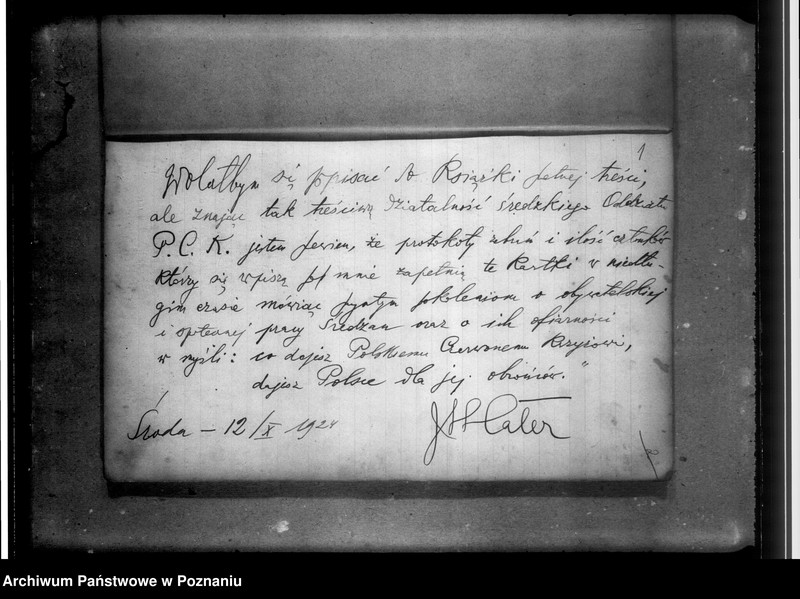 1
Wolałbym się wpisać do Książki pełnej treści,
ale znając tak treściwą działalność średzkiego Oddziału
P. C. K. jestem pewien, że protokoły zebrań i ilość członków
którzy się wpiszą po mnie zapełnią te kartki w niedłu-
gim czasie mówiąc przyszłym pokoleniom o obywatelskiej
i pracy Średzian oraz o ich ofiarności
w myśli: co dajesz Polskiemu Czerwonemu Krzyżowi,
dajesz Polsce dla jej obrońców."
Środa – 12/X 1924
Archiwum Państwowe w Poznaniu